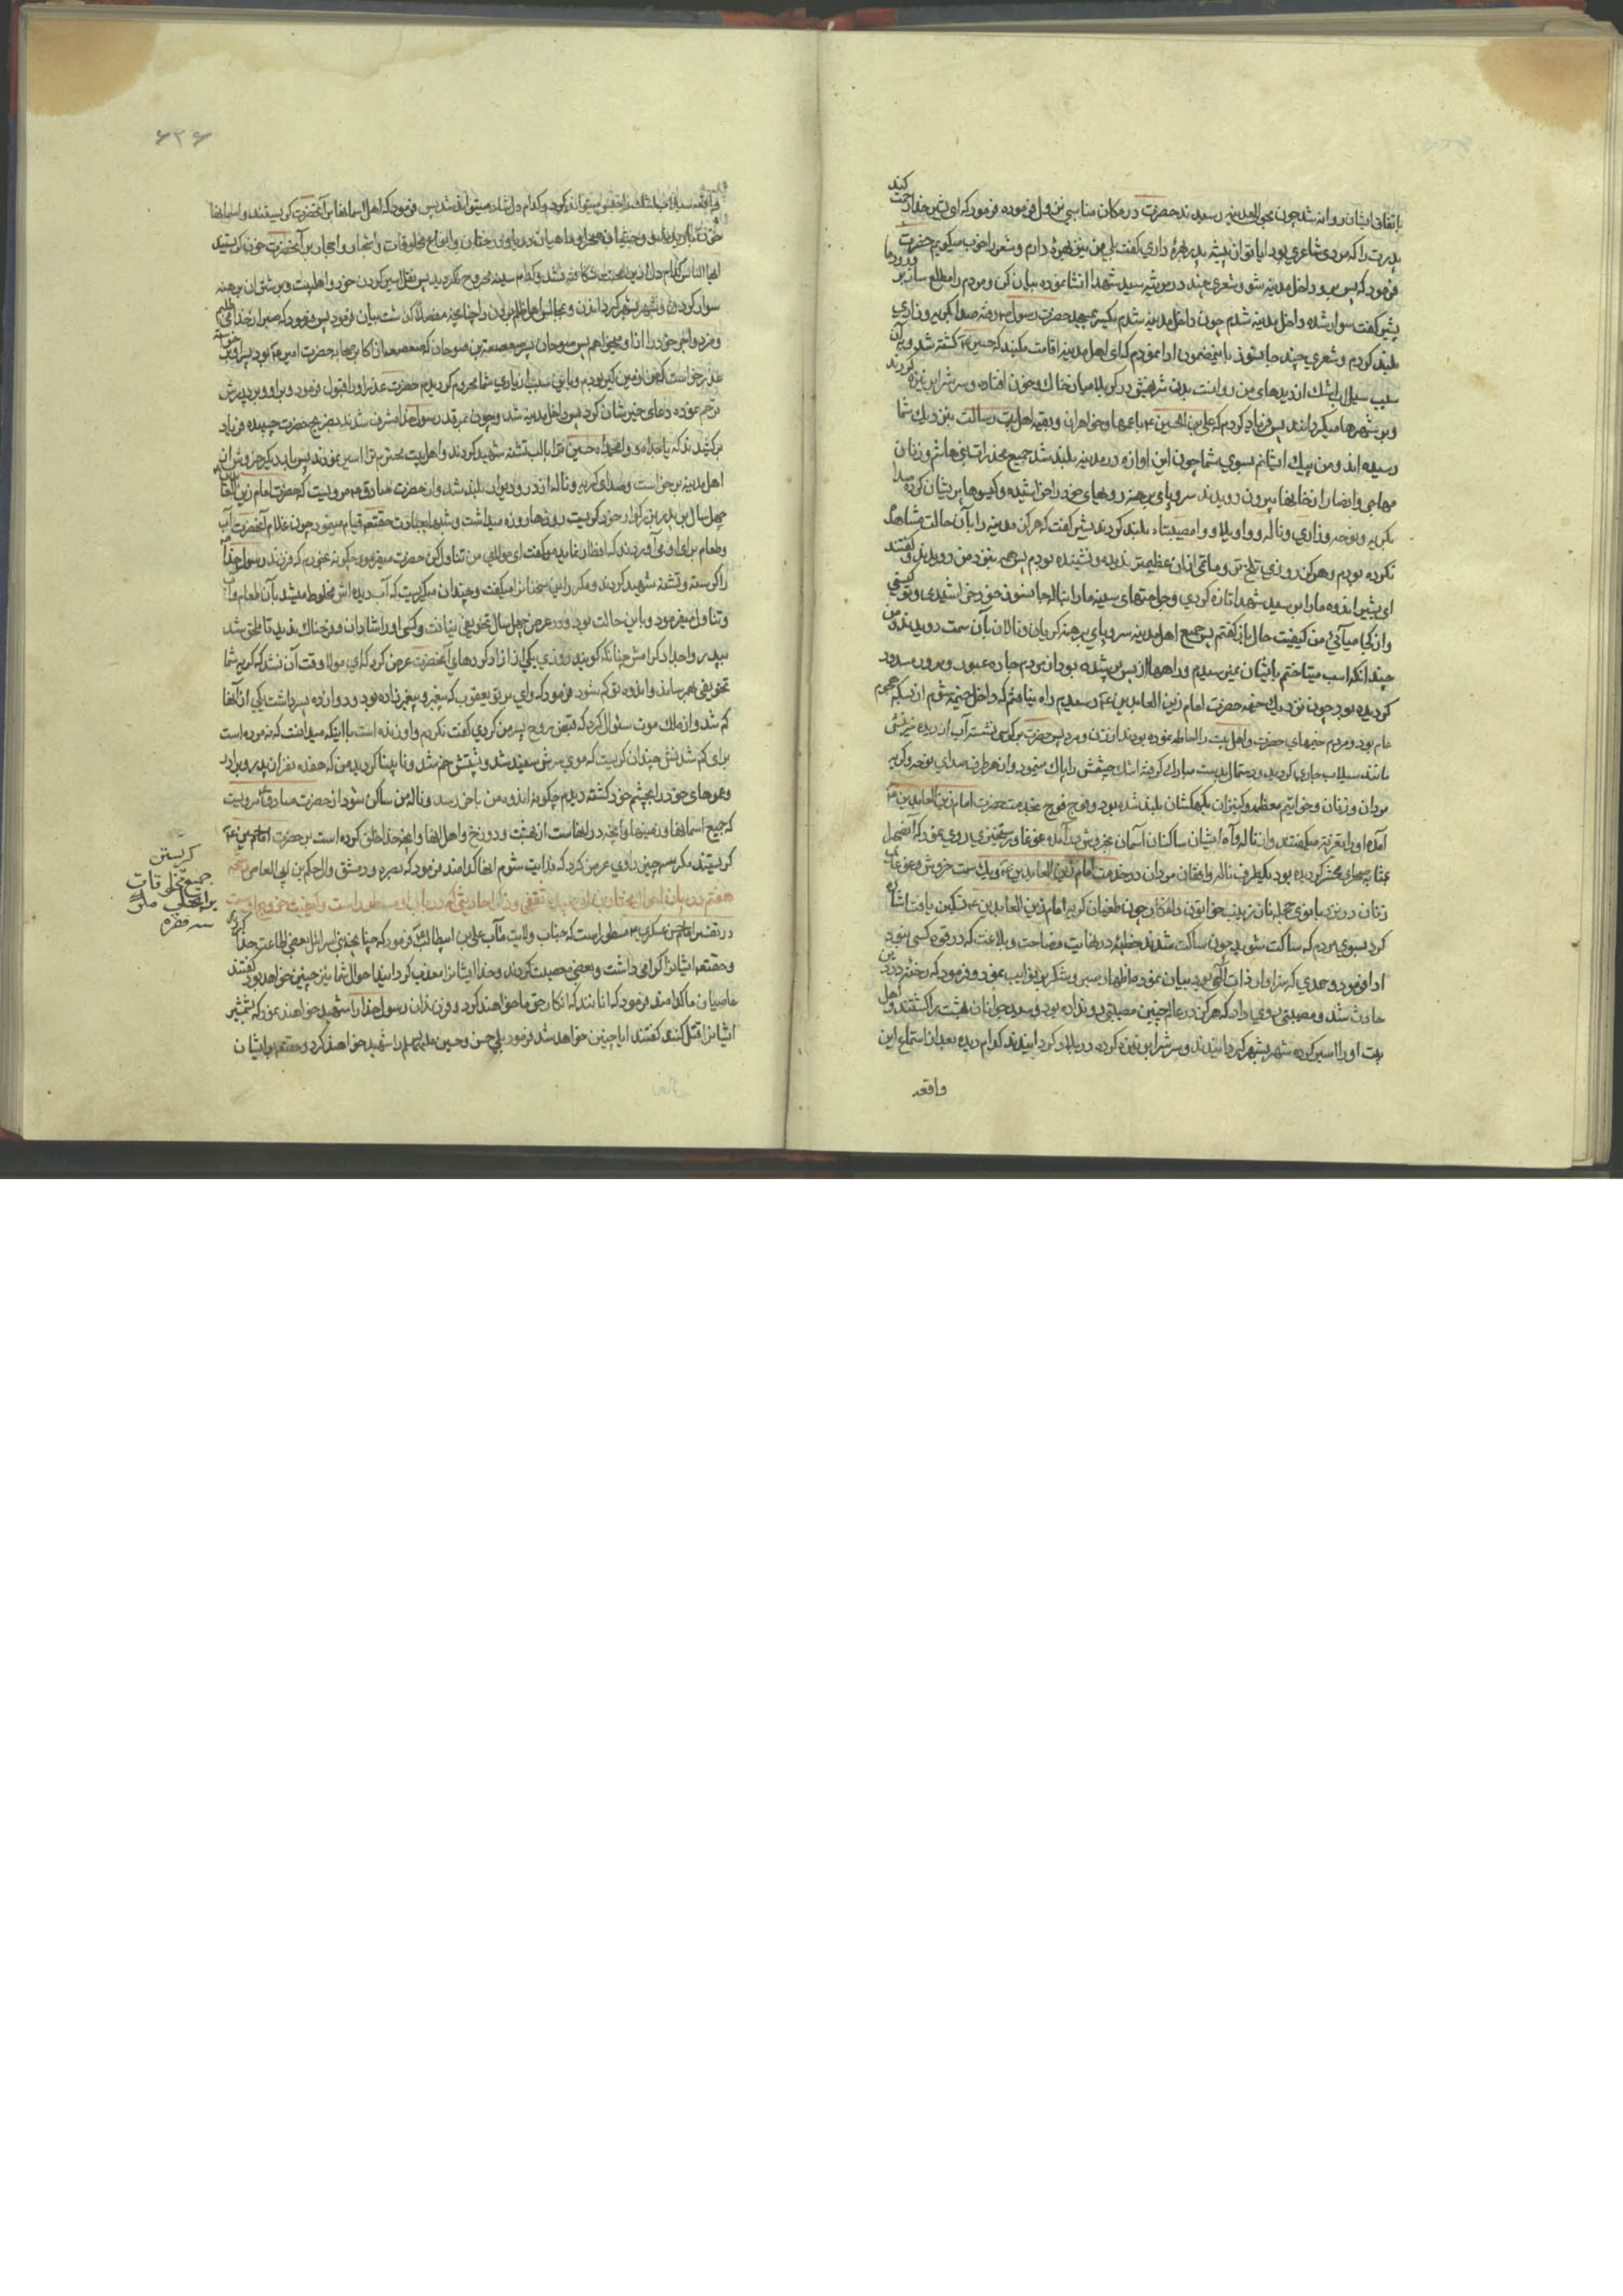 باتفاق ایشان روانه شد چون بحوالی مدینه رسیدند حضرت در مکان مناسبی نزول فرموده فرمود که ای بشیر خدا رحمت کند
پدرت را که مرد شاعری بود ایا تو از پیشه پدر بهرهٔ داری گفت بلی من نیز بهرهٔ دارم و شعر را خوب میگویم حضرت
فرمود که پس برو داخل مدینه شو و شعری چند در مرثیه سید شهدا انشا نموده بیان کن و مردم را مطلع ساز بر ورود ما
بشیر گفت سوار شده داخل مدینه شدم چون داخل مدینه شدم بمسجد حضرت رسول رفته صدا بگریه و زاری
بلند کردم و شعری چند جانسوز باینمضمون ادا نمودم که ای اهل مدینه اقامت مکنید که حسین کشته شد و باین
سبب سیلاب اشک از دیدهای من روانست بدن شریفش در کربلا میان خاک و خون افتاده و سر شرا بر نیزه کردند
و بر شهرها میگردانند پس فریاد کردم که علی بن الحسین با عمها و خواهران و بقیه اهل بیت رسالت بنزدیک شما
رسیده اند و من پیک ایشانم بسوی شما چون این اوازه در مدینه بلند شد جمیع مخدرات بنی هاشم و زنان
مهاجر و انصار از خانها بیرون دویدند سر و پای برهنه رویهای خود را خراشیده و گیسوها پریشان کرده صدا
بگریه و نوحه و زاری و ناله و واویلا و وامصیبتاه بلند کردند بشیر گفت که هرگز مدینه را بآن حالت مشاهده
نکرده بودم و هرگز روزی تلخ تر و ماتمی از ان عظیمتر ندیده و نشنیده بودم پس همه بنزد من دویدند و گفتند
ای بشیر اندوه ما را بر سید شهدا تازه کردی و جراحتهای سینه ما را بناله جانسوز خود خراشیدی تو کیستی
و از کجا میآئی من کیفیت حال باز گفتم پس جمیع اهل مدینه سر و پای برهنه گریان و نالان بآن سمت دویدند من
چندانکه اسب میتاختم بایشان نمیرسیدم و راهها از بس پر شده بود از مردم جاده عبور و مرور مسدود
گردیده بود چون نزدیک خیمه حضرت امام زین العابدین رسیدم راه نیافتم که داخل خیمه شوم از بسکه هجوم
عام بود و مردم خیمهای حضرت و اهل بیت را احاطه نموده بودند از زن و مرد پس حضرت بر کرسی نشست آب از دیده
مانند سیلاب جاری گردید و دستمال بدست مبارک گرفته اشک چشمش را پاک مینمود و از هر طرف صدای نوحه و گریه
مردان و زنان و خواتیم معظمه و کنیزان بکهکشان بلند شده بود و فوج فوج بخدمت حضرت امام زین العابدین
آمده او را تعزیه میگفتند و از ناله و آه ایشان ساکنان آسمان بخروش درآمده غوغا و رستخیزی روی نمود که
بمثابه صحرای محشر گردیده بود یکطرف ناله و افغان مردان در خدمت امام زین العابدین و یک سمت خروش و غوغای
زنان در نزد بانوی حجله زنان زینب خواتون چون طغیان گریه امام زین العابدین تسکین یافت اشاره
کرد بسوی مردم که ساکت شوید چون ساکت شدند خطبه در نهایت فصاحت و بلاغت که در قوه کسی نبود
ادا فرمود و حمدی که سزاوار ذات الهی بود بیان نمود و اظهار صبر و شکر بر نوایب نمود و فرمود که رخنه در دین
حادث شد و مصیبتی روی داد که هرگز در عالم چنین مصیبتی رو نداده بود و سید جوانان بهشت را کشتند و اهل
بیت او را اسیر کرده شهر بشهر گردانیدند و سر شرا بر نیزه کرده در بلاد گردانیدند کدام دیده بعد از استماع این
واقعه
۶۲۶
فرمود که اهل اسمانها بر آنحضرت گریستند و اسمانها
خون باریدند و وحشیان صحرا و ماهیان دریا و درختان و انواع مخلوقات و اشجار و احجار بر آنحضرت خون گریستند
ایها الناس کدام دل از این محنت شکافته نشد و کدام سینه مجروح نگردید پس نقل اسیر کردن خود و اهلبیت و بر شتران برهنه
سوار کردن و شهر بشهر گردانیدن و بمجالس اهل ظلم بردن و انچه مفصلا گذشت بیان فرمود پس فرمود که صبر از خدا
پس صعصعه بن صوحان که صعصعه از اکابر صحابه حضرت امیر بود برخواسته
عذر خواست که من از زمین گیر بودم و باین سبب از یاری شما محروم گردیدم حضرت عذر او را قبول فرمود و بر او و بر پدرش
ترحم نموده دعای خیر شان کرد پس داخل مدینه شد و چون بمرقد رسولخدا مشرف شدند بضریح حضرت چسپیده فریاد
برکشیدند که یا جداه و وامحمداه حسین ترا با لب تشنه شهید کردند و اهل بیت محترم ترا اسیر نمودند پس بار دیگر خروش از
اهل مدینه برخواست و صدای گریه و ناله از در و دیوار بلند شد و از حضرت صادق مرویست که حضرت امام زین العابدین
چهل سال بر پدر بزرگوار خود گریست روزها روزه میداشت و شبها بعبادت حقتعالی قیام مینمود چون غلام آنحضرت آب
و طعام برای او می آورد که افطار نماید میگفت ای مولای من تناول کن حضرت میفرمود چگونه بخورم که فرزند رسولخدا
را گرسنه و تشنه شهید کردند و مکرر این سخنان را میگفت و چندان میگریست که آب دیده اش مخلوط میشد بآن طعام و آب
و تناول میفرمود و باین حالت بود و در عرض چهل سال تخویفی نیافت و کسی او را شادان و فرحناک ندید تا ملحق شد
بپدر و اجداد گرامش چنانکه گویند روزی یکی از آزاد کردهای آنحضرت عرض کرد که ای مولا وقت آن نشد که گریه شما
تخفیفی بهم رساند و اندوه تو کم شود فرمود که وای بر تو یعقوب که پیغمبر و پیغمبر زاده بود و دوازده پسر داشت یکی از انها
گم شد و از ملک موت سئوال کرد که قبض روح پسر من کردی گفت نکردم و او زنده است با اینکه میدانست که نمرده است
برای گم شدنش چندان گریست که موی سرش سفید شد و پشتش خم شد و نابینا گردید من که هفده نفر از پدر و برادر
و عموهای خود را بچشم خود کشته دیدم چگونه اندوه من باخر رسد و ناله من ساکن شود از حضرت صادق مرویست
که جمیع اسمانها و زمینها و انچه در انهاست از بهشت و دوزخ و اهل انها و انچه خدا خلق کرده است بر حضرت امام حسین
گریستند مگر سه چیز راوی عرض کرد که فدایت شوم انها کدامند فرمود که بصره و دمشق و ال حکم بن ابی العاص
هفتم در بیان احوال مختار بن ابی عبیده ثقفی و ذکر احادیثی که در باب او مسطور است و کیفیت خروج اوست
در تفسیر امام حسن عسکری مسطور است که جناب ولایت مآب علی بن ابیطالب فرمود که چنانچه بنی اسرائیل بعضی اطاعت خدا کردند
و حقتعالی ایشانرا گرامی داشت و بعضی معصیت کردند و خدا ایشانرا معذب گردانید احوال شما نیز چنین خواهد بود گفتند
عاصیان ما کدامند فرمود که انانند که انکار حق ما خواهند کرد و فرزندان رسولخدا را شهید خواهند نمود
ایشانرا قتل کنند گفتند ایا چنین خواهد شد فرمود بلی حسن و حسین را شهید خواهند کرد و حقتعالی بر ایشان
گریستن
جمیع مخلوقات
سه فقره